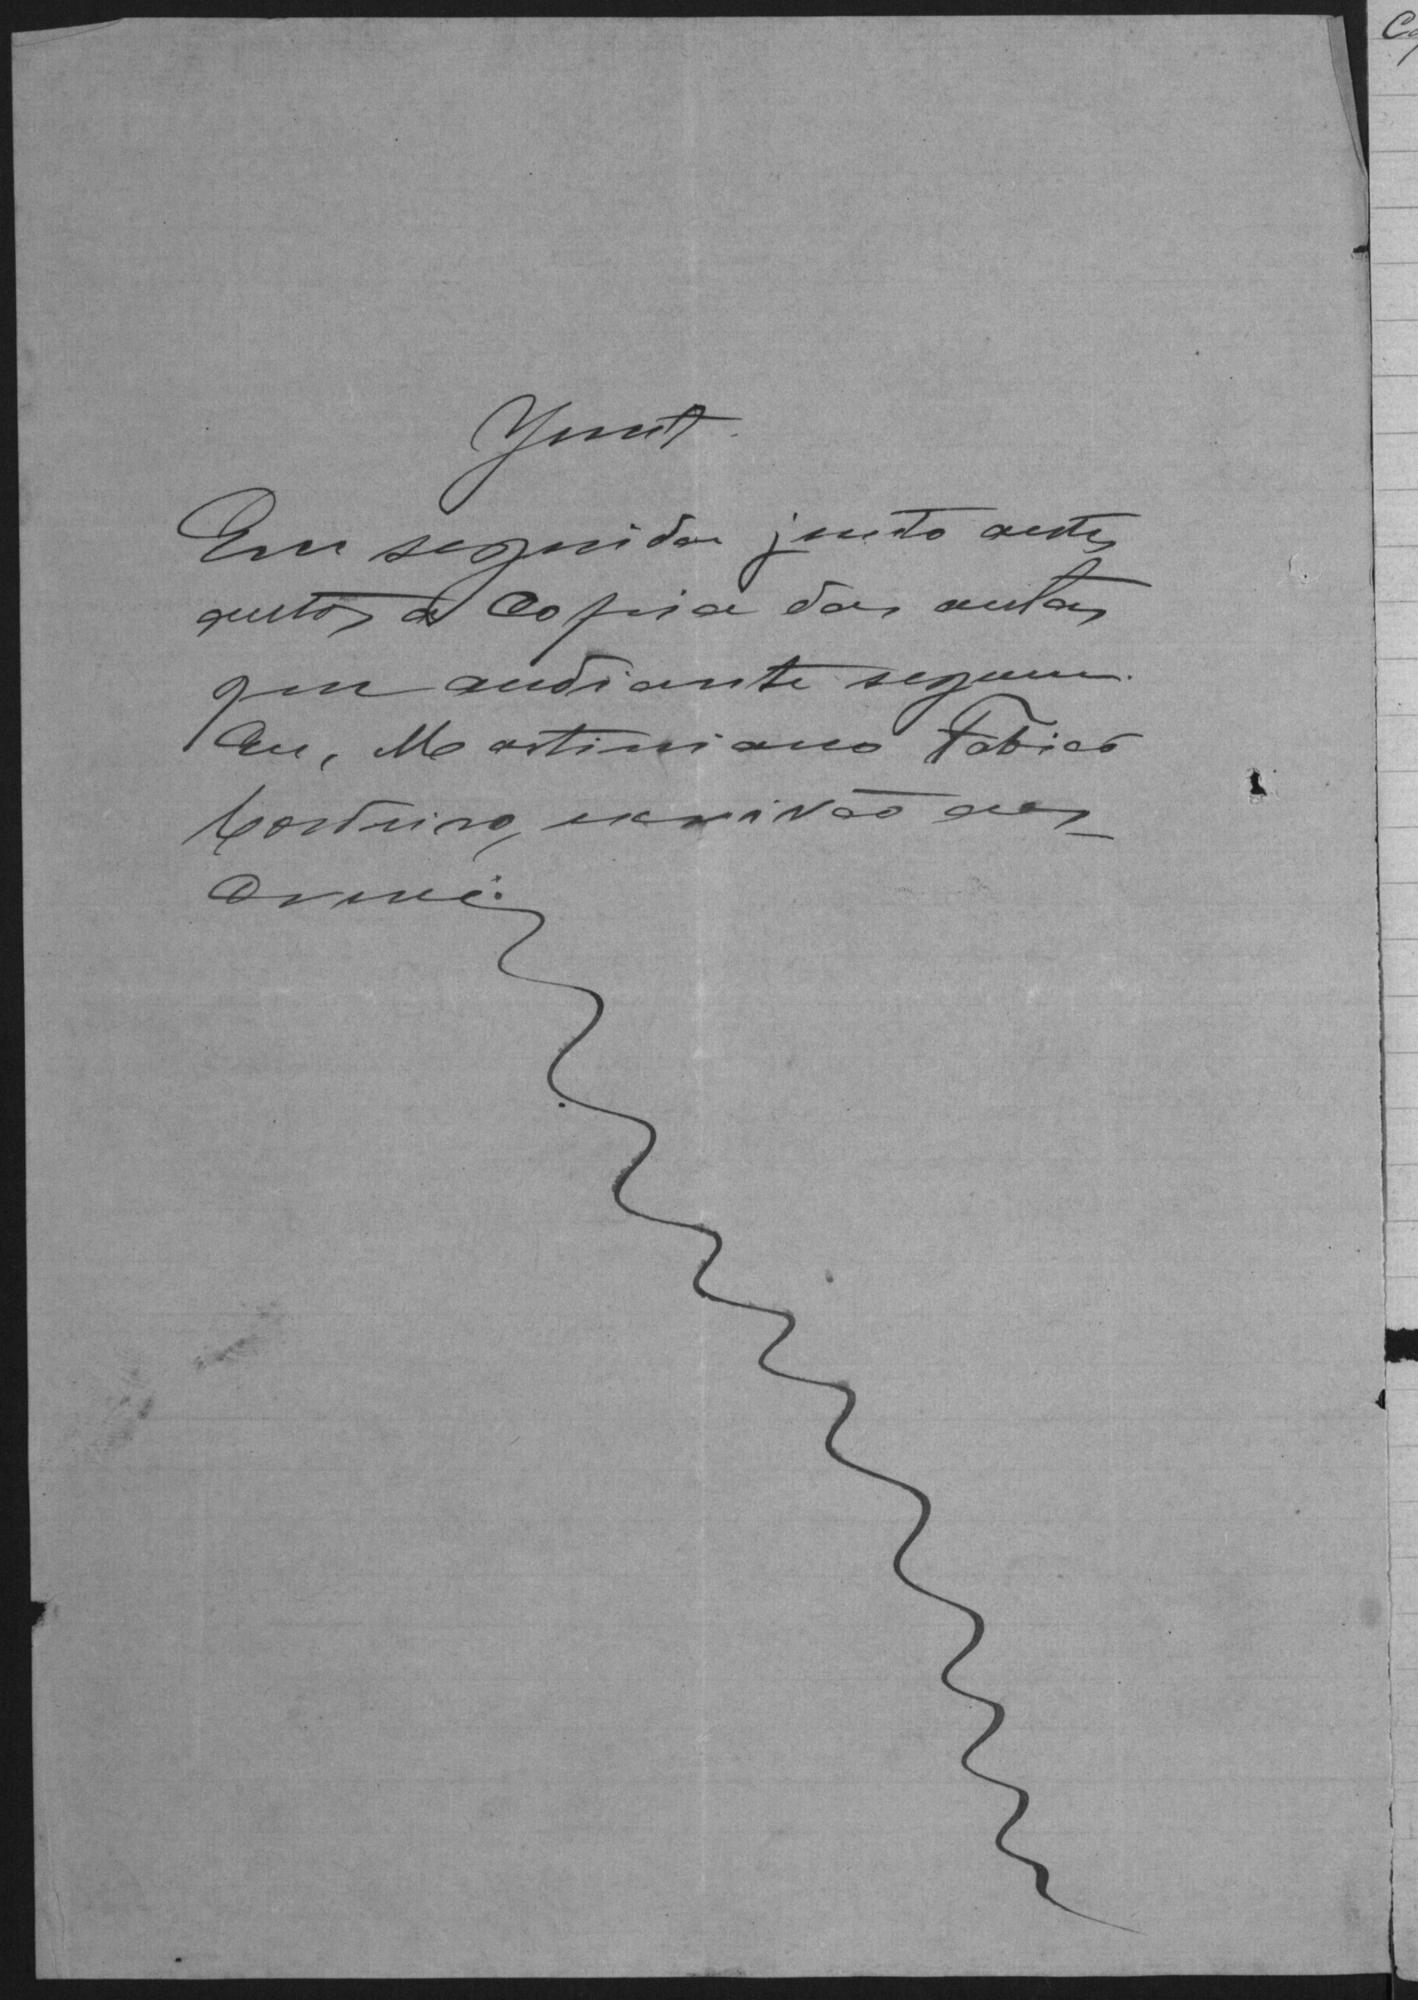 Junt.
Em seguida junto aestes
autos a Copia das autas
que audiante seguem.
Eu, Martiniano Fabião
Cordeiro, escrivão que es
crevi.